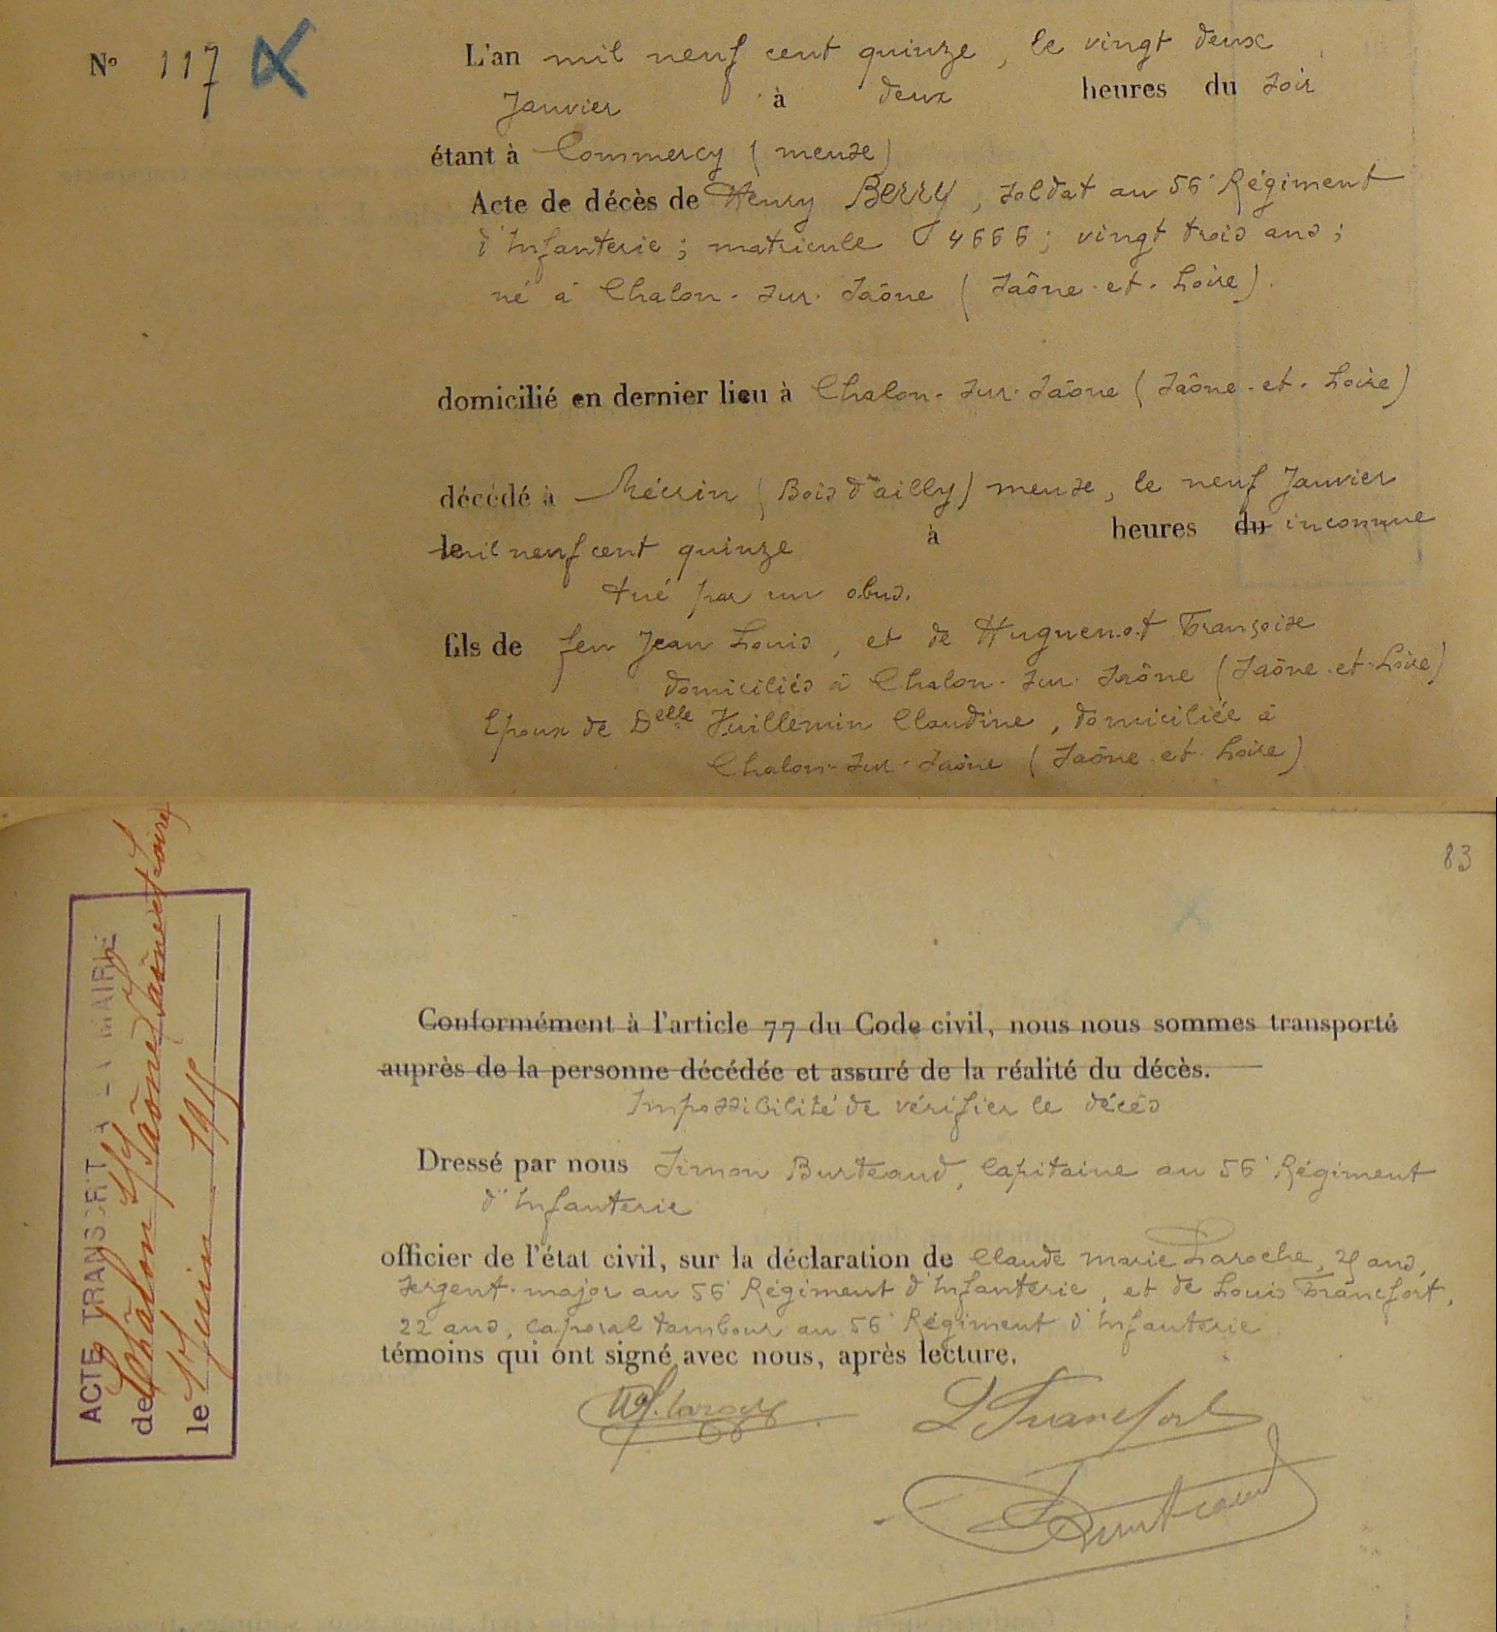 N° 117
L'an mil neuf cent quinze, le vingt deux
Janvier à deux heures du soir
étant à Commercy (meuse)
Acte de décès de Henry Berry, soldat au 56e Régiment
d'Infanterie; matricule 4666; vingt trois ans;
né à Chalon-sur-Saône (Saône-et-Loire).
domicilié en dernier lieu à Chalon-sur-Saône (Saône-et-Loire)
décédé à Mécrin (Bois d'ailly) meuse, le neuf Janvier
le mil neuf cent quinze à heures du inconnue
tué par un obus.
fils de feu Jean Louis, et de Huguenot Françoise
domiciliés à Chalon-sur-Saône (Saône-et-Loire)
Epoux de Delle Vuillemin Claudine, domiciliée à
Chalon-sur-Saône (Saône et Loire)
83
ACTE TRANSCRIT A LA MAIRIE
de Châlon s/Saône Saône et Loire
le 17 Juin 1915
Conformément à l'article 77 du Code civil, nous nous sommes transporté
auprès de la personne décédée et assuré de la réalité du décès.
Impossibilité de vérifier le décès
Dressé par nous Simon Burteaud, Capitaine au 56e Régiment
d'Infanterie
officier de l'état civil, sur la déclaration de Claude marie Laroche, ans,
sergent-major au 56e Régiment d'Infanterie, et de Louis Francfort,
22 ans, caporal tambour au 56e Régiment d'Infanterie
témoins qui ont signé avec nous, après lecture.
Laroche L Francfort
Burteaud